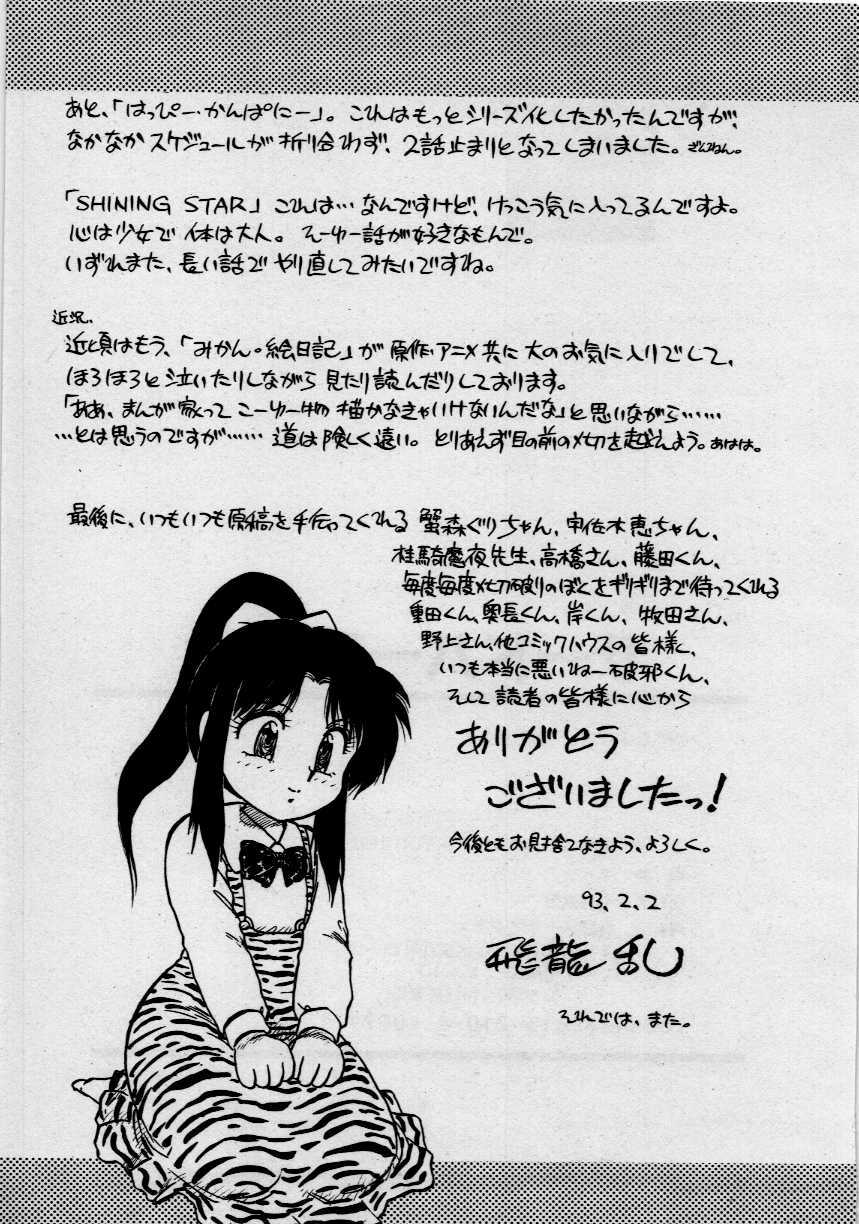 あと、「はっぴー・かんぱにー」。これはもっとシリーズ化したかったんですが、
なかなかスケジュールが折り合わず、2話止まりとなってしまいました。ざんねん。
「SHINING STAR」これは…なんですけど、けっこう気に入ってるんですよ。
心は少女で体は大人。そーゆー話が好きなもんで。
いずれまた、長い話でやり直してみたいですね。
近況、
近頃はもう、「みかん。絵日記」が原作・アニメ共に大のお気に入りでして、
ほろほろと泣いたりしながら見たり読んだりしております。
「ああ、まんが家ってこーゆー物描かなきゃいけないんだな」と思いながら……
…とは思うのですが……道は険しく遠い。とりあえず目の前の〆切を越えよう。あはは。
最後に、いつもいつも原稿を手伝ってくれる蟹森ぐりちゃん、宇佐木恵ちゃん、
桂騎魔夜先生、高橋さん、藤田くん、
毎度毎度〆切破りのぼくをギリギリまで待ってくれる
重田くん、奥長くん、岸くん、牧田さん、
野上さん、他コミックハウスの皆様、
いつも本当に悪いねー破邪くん、
そして読者の皆様に心から
ありがとう
ございましたっ!
今後ともお見捨てなきよう、よろしく。
93.2.2
飛龍 乱
それでは、また。